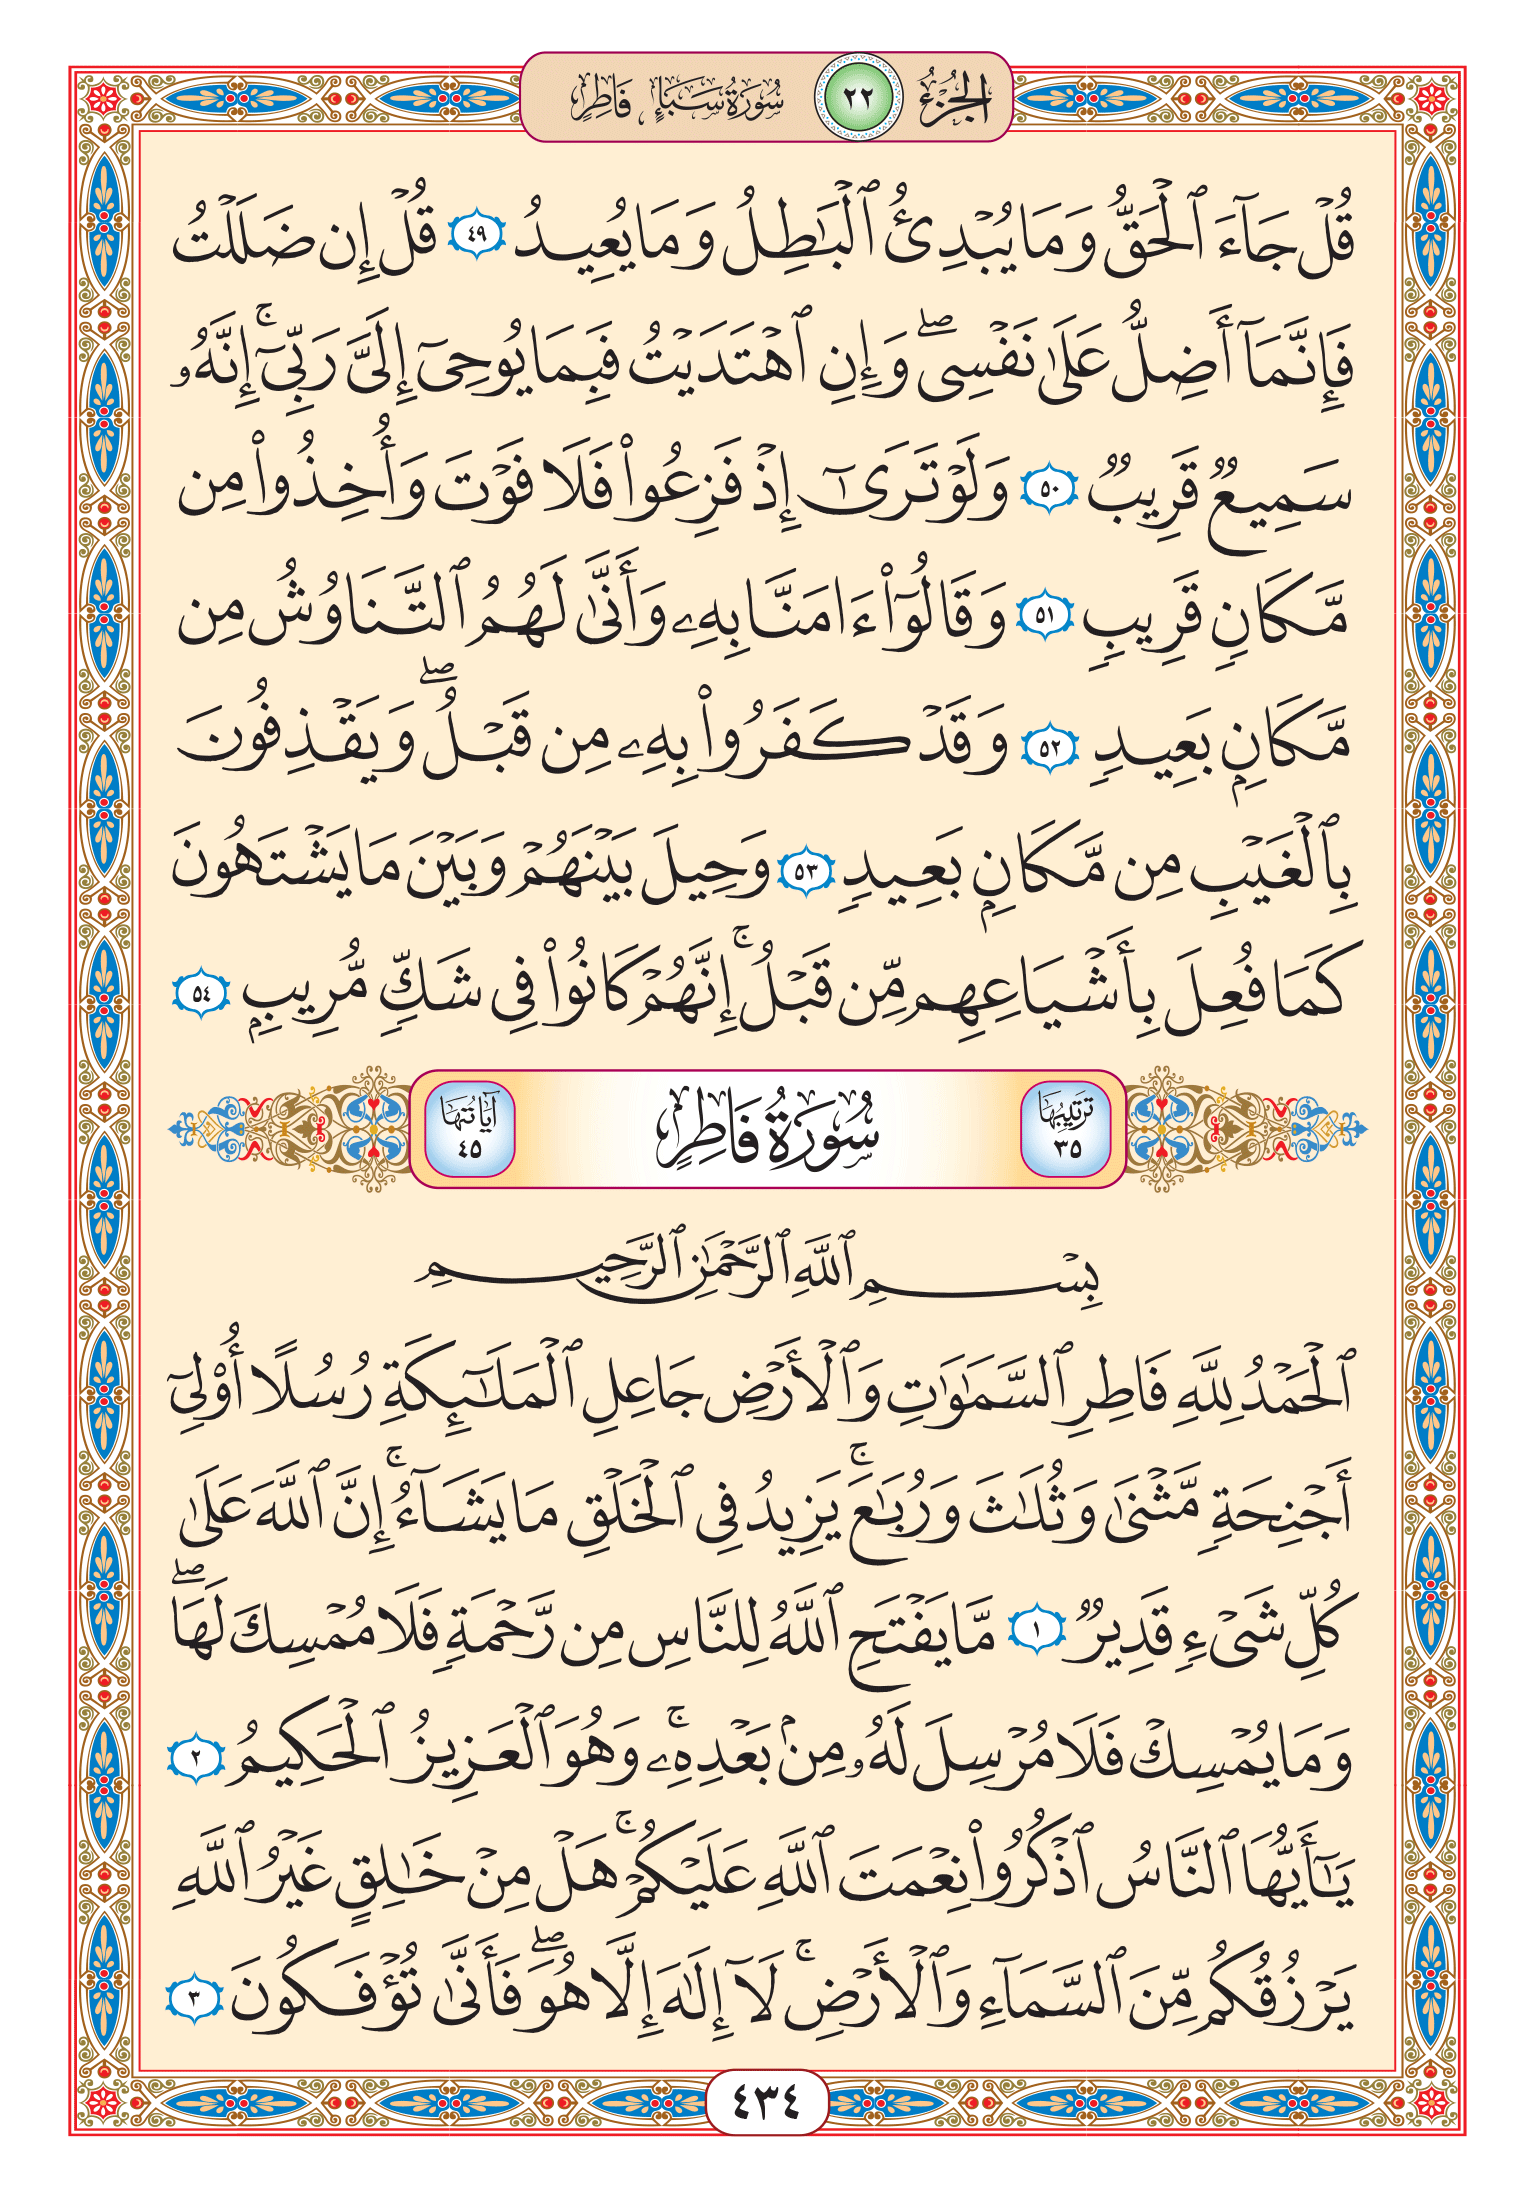 الجزء ٢٢ سورة سبإ فاطر
قُلْ جَآءَ ٱلْحَقُّ وَمَا يُبْدِئُ ٱلْبَٰطِلُ وَمَا يُعِيدُ ٤٩ قُلْ إِن ضَلَلْتُ
فَإِنَّمَآ أَضِلُّ عَلَىٰ نَفْسِى ۖ وَإِنِ ٱهْتَدَيْتُ فَبِمَا يُوحِىٓ إِلَىَّ رَبِّىٓ ۚ إِنَّهُۥ
سَمِيعٌ قَرِيبٌ ٥٠ وَلَوْ تَرَىٰٓ إِذْ فَزِعُوا۟ فَلَا فَوْتَ وَأُخِذُوا۟ مِن
مَّكَانٍ قَرِيبٍ ٥١ وَقَالُوٓا۟ ءَامَنَّا بِهِۦ وَأَنَّىٰ لَهُمُ ٱلتَّنَاوُشُ مِن
مَّكَانٍۭ بَعِيدٍ ٥٢ وَقَدْ كَفَرُوا۟ بِهِۦ مِن قَبْلُ ۖ وَيَقْذِفُونَ
بِٱلْغَيْبِ مِن مَّكَانٍۭ بَعِيدٍ ٥٣ وَحِيلَ بَيْنَهُمْ وَبَيْنَ مَا يَشْتَهُونَ
كَمَا فُعِلَ بِأَشْيَاعِهِم مِّن قَبْلُ ۚ إِنَّهُمْ كَانُوا۟ فِى شَكٍّ مُّرِيبٍۭ ٥٤
ترتيبها ٣٥ سُورَةُ فَاطِرٍ آياتها ٤٥
بِسْمِ ٱللَّهِ ٱلرَّحْمَٰنِ ٱلرَّحِيمِ
ٱلْحَمْدُ لِلَّهِ فَاطِرِ ٱلسَّمَٰوَٰتِ وَٱلْأَرْضِ جَاعِلِ ٱلْمَلَٰٓئِكَةِ رُسُلًا أُو۟لِىٓ
أَجْنِحَةٍ مَّثْنَىٰ وَثُلَٰثَ وَرُبَٰعَ ۚ يَزِيدُ فِى ٱلْخَلْقِ مَا يَشَآءُ ۚ إِنَّ ٱللَّهَ عَلَىٰ
كُلِّ شَىْءٍ قَدِيرٌ ١ مَّا يَفْتَحِ ٱللَّهُ لِلنَّاسِ مِن رَّحْمَةٍ فَلَا مُمْسِكَ لَهَا ۖ
وَمَا يُمْسِكْ فَلَا مُرْسِلَ لَهُۥ مِنۢ بَعْدِهِۦ ۚ وَهُوَ ٱلْعَزِيزُ ٱلْحَكِيمُ ٢
يَٰٓأَيُّهَا ٱلنَّاسُ ٱذْكُرُوا۟ نِعْمَتَ ٱللَّهِ عَلَيْكُمْ ۚ هَلْ مِنْ خَٰلِقٍ غَيْرُ ٱللَّهِ
يَرْزُقُكُم مِّنَ ٱلسَّمَآءِ وَٱلْأَرْضِ ۚ لَآ إِلَٰهَ إِلَّا هُوَ ۖ فَأَنَّىٰ تُؤْفَكُونَ ٣
٤٣٤